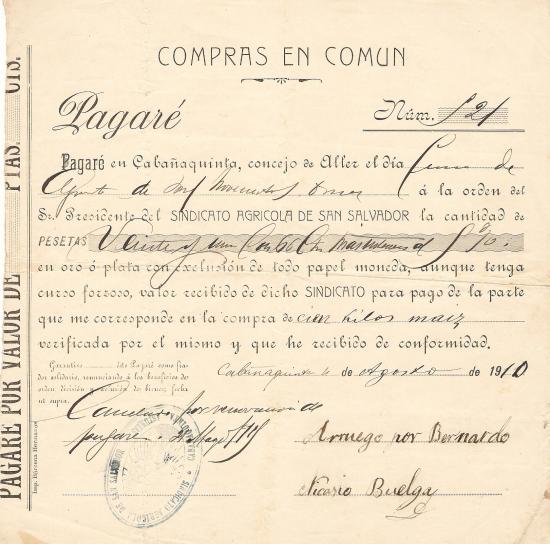 COMPRAS EN COMUN
Pagaré
Núm. 521
Pagaré en Cabañaquinta, concejo de Aller el día
de mil novecientos once á la orden del
Sr. Presidente del SINDICATO AGRICOLA DE SAN SALVADOR la cantidad de
PESETAS Veinte y un
en oro ó plata con exclusión de todo papel moneda, aunque tenga
curso forzoso, valor recibido de dicho SINDICATO para pago de la parte
que me corresponde en la compra de cien kilos maiz
verificada por el mismo y que he recibido de conformidad.
Garantizo este Pagaré como fia-
dor solidario, renunciando á los beneficios de
orden, división y excusión de bienes, fecha
ut supra.
Cabañaquinta 4 de Agosto de 1910
Cancelado por renovación de
pagaré
Arruego por Bernardo
Nicasio Buelga
SINDICATO AGRICOLA DE SAN SALVADOR
PAGARÉ POR VALOR DE PTAS. CTS.